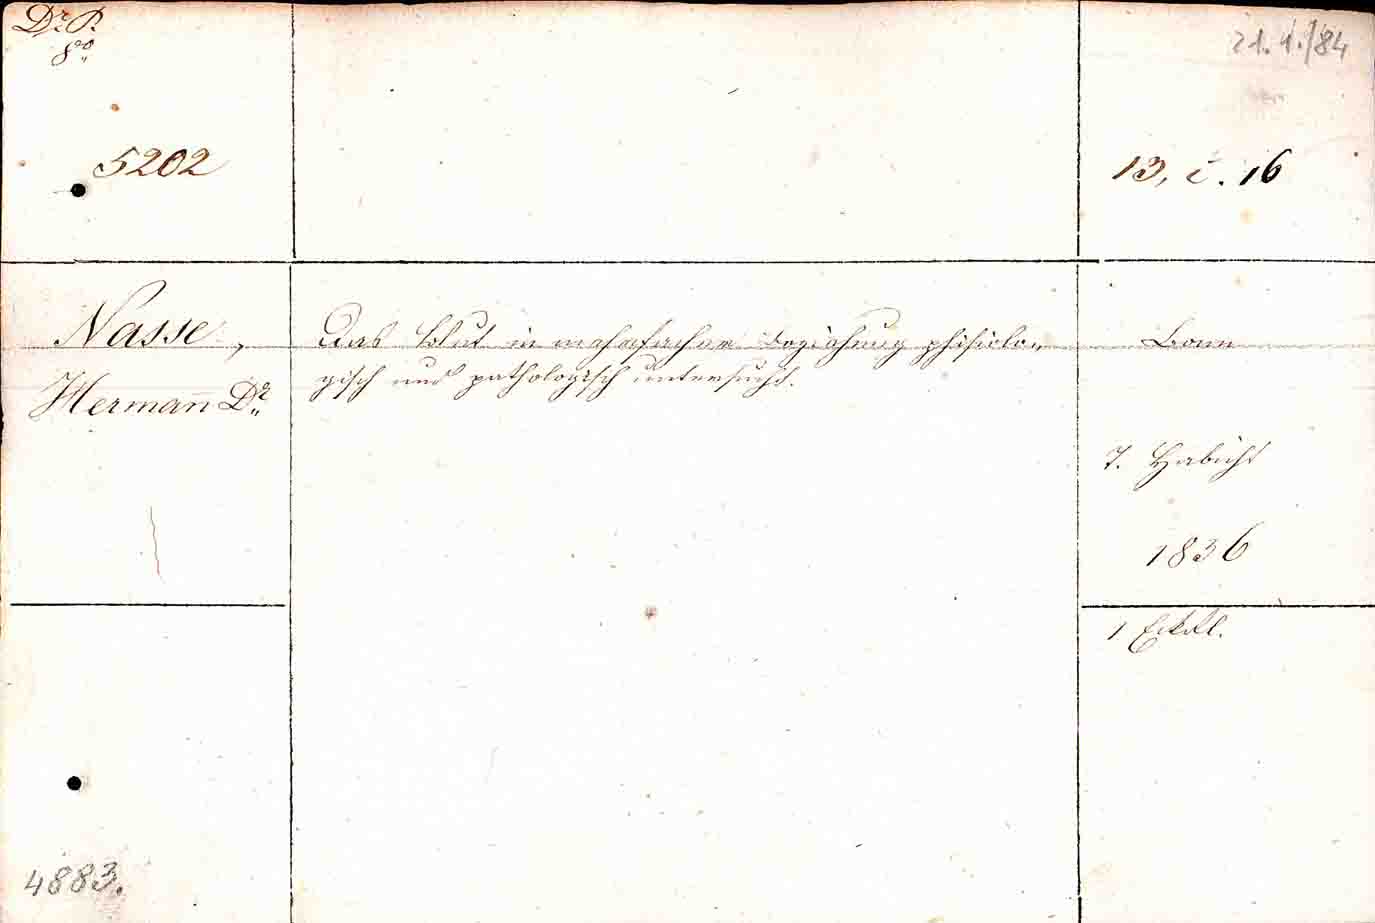 Dr. P.
8°
21.1./84
5202
13, c. 16
Nasse,
Hermann Dr.
Das Blut in mehrfacher Beziehung phisiolo-
gisch und pathologisch untersucht.
Bonn
T. Habicht
1836
1
4883.